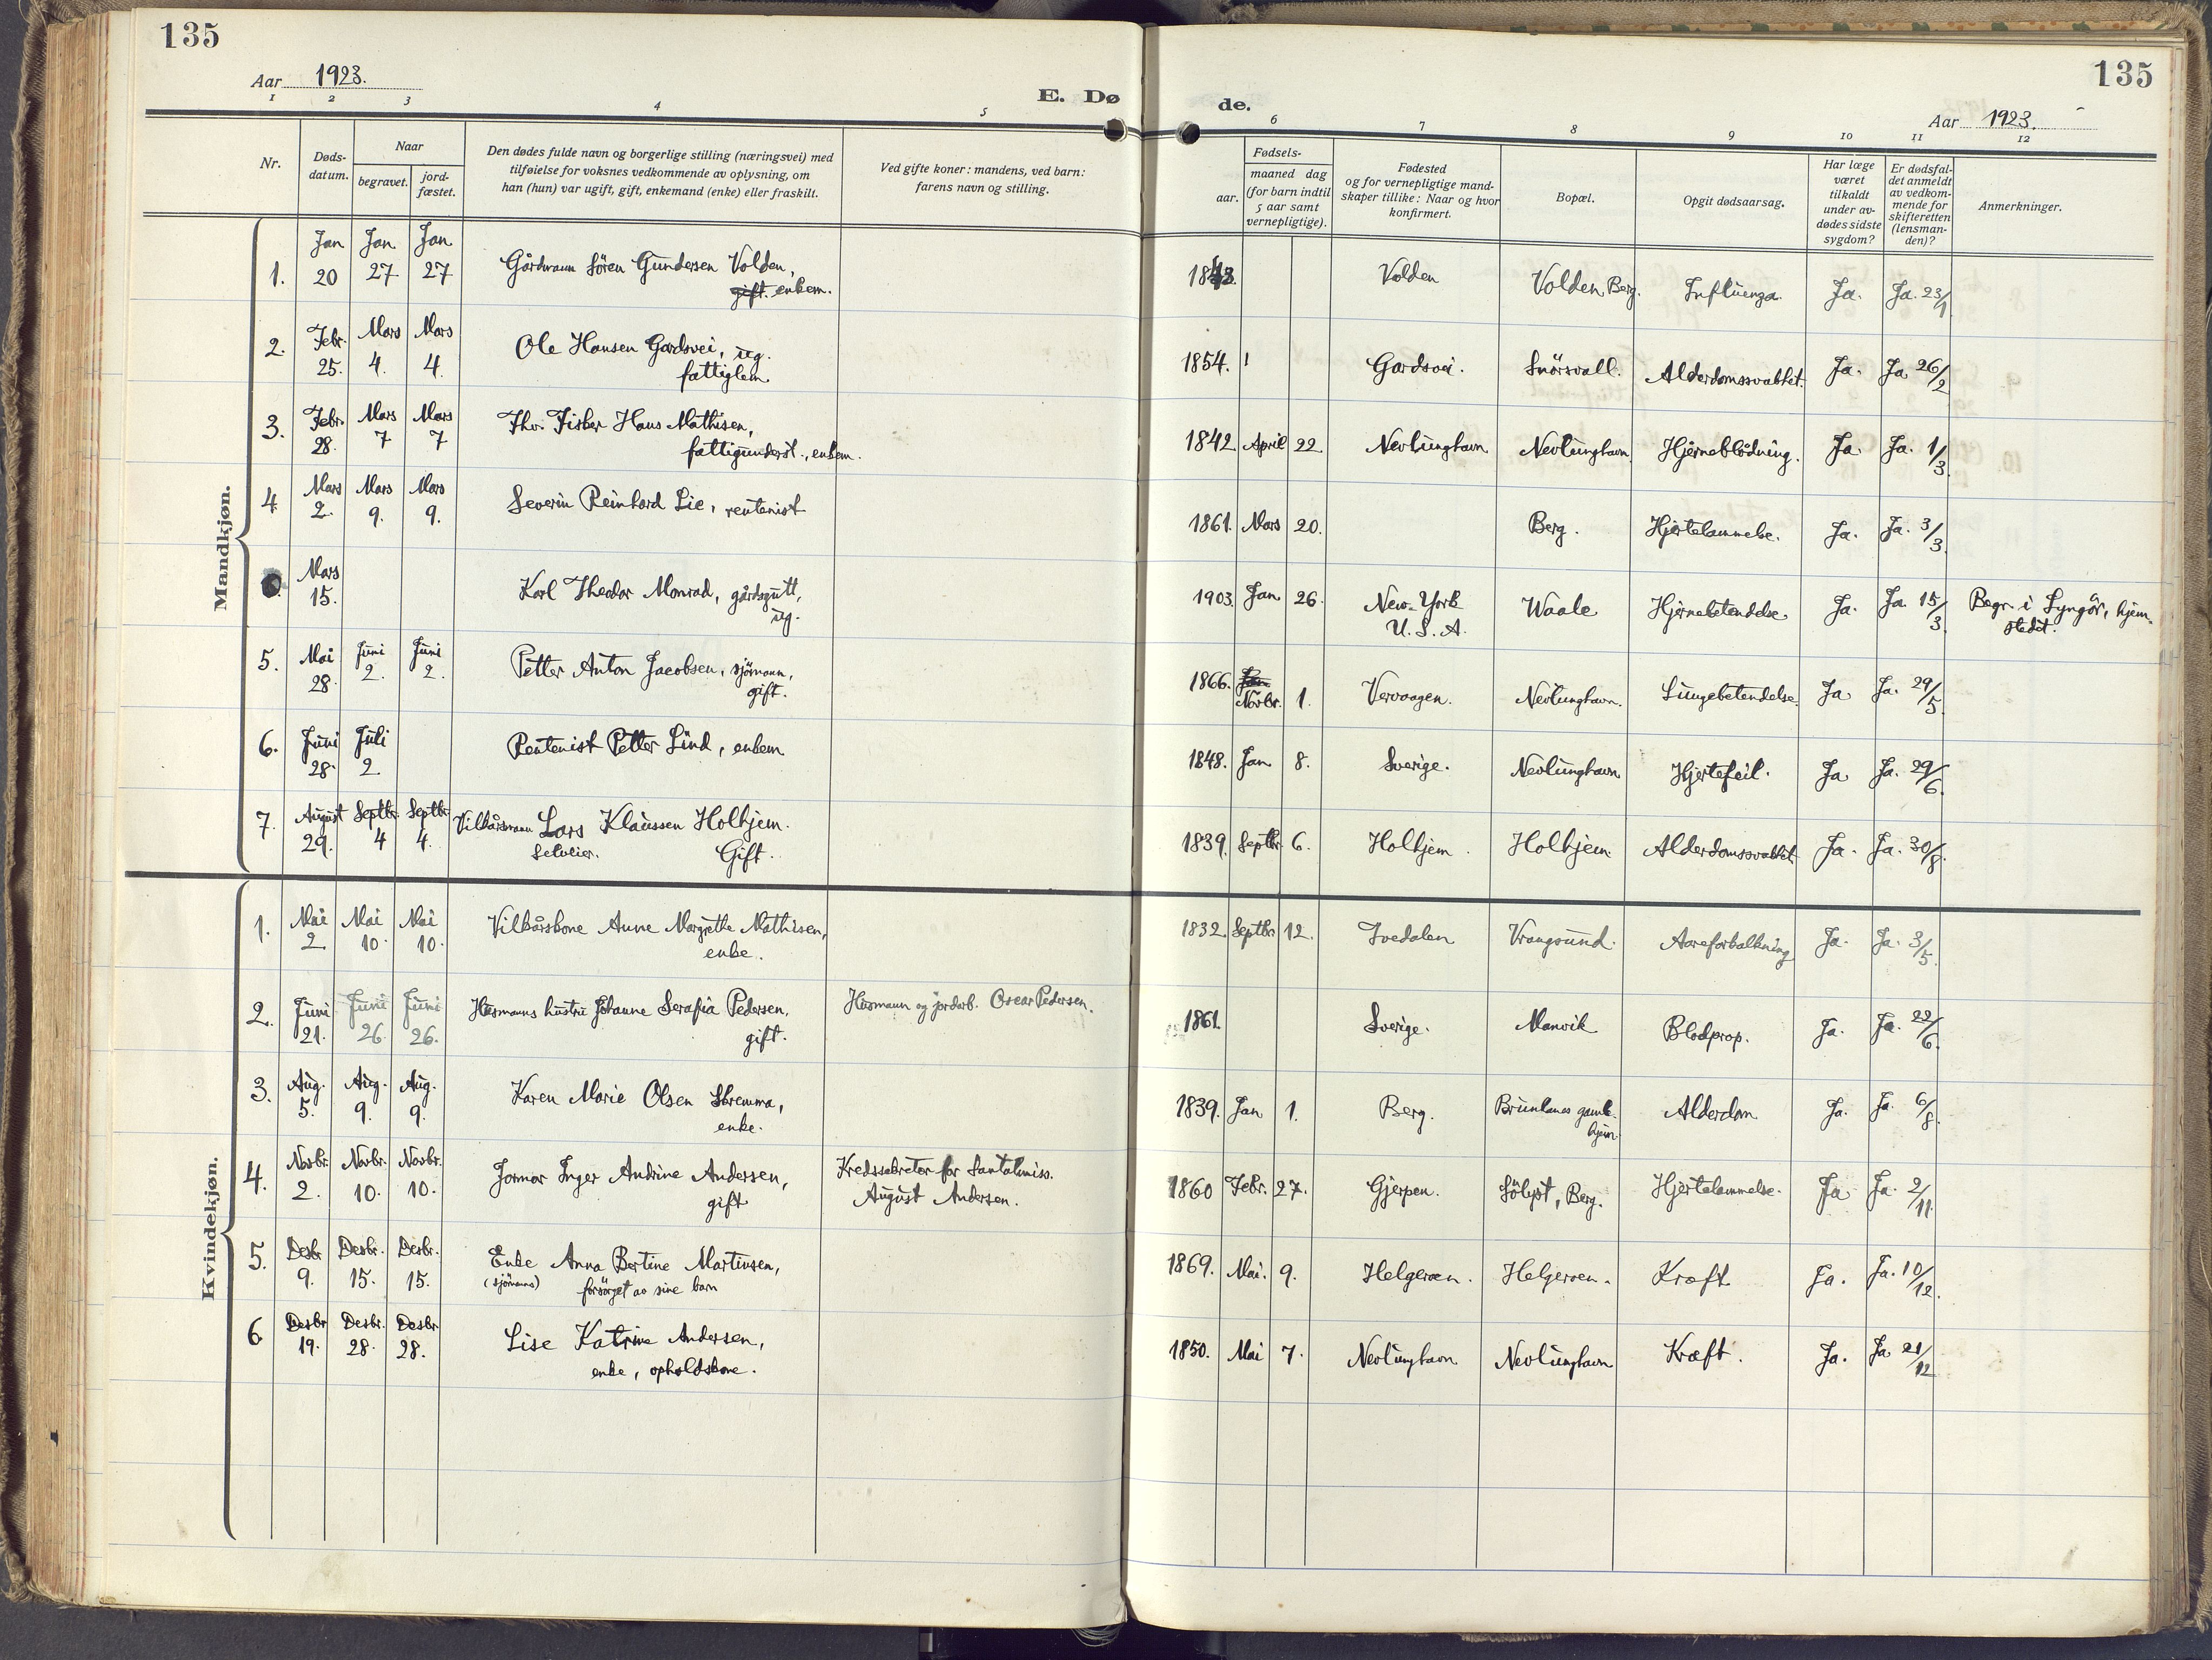 135
Aar 1923.
E. Dø
1 2 3 4 5
Nr.
Døds-
datum.
Naar
begravet.
jord-
fæstet.
Den dødes fulde navn og borgerlige stilling (næringsvei) med
tilføielse for voksnes vedkommende av oplysning, om
han (hun) var ugift, gift, enkemand (enke) eller fraskilt.
Ved gifte koner: mandens, ved barn:
farens navn og stilling.
135
de.
Aar 1923.
6 7 8 9 10 11 12
Fødsels-
aar.
maaned dag
(for barn indtil
5 aar samt
vernepligtige).
Fødested
og for vernepligtige mand-
skaper tillike: Naar og hvor
konfirmert.
Bopæl.
Opgit dødsaarsag.
Har læge
været
tilkaldt
under av-
dødes sidste
sygdom?
Er dødsfal-
det anmeldt
av vedkom-
mende for
skifteretten
(lensman-
den)?
Anmerkninger.
Mandkjøn.
1. Jan 20 Jan 27 Jan 27 Gårdmann Sören Gundersen Volden,
gift. enkem.
1843. Volden Volden Berg. Influenza. Ja. Ja. 23/1
2. Febr. 25. Mars 4. Mars 4. Ole Hansen Gardsvei, ug.
fattiglem
1854. Gardsvei. Snörsvall. Alderdomssvakhet. Ja. Ja 26/2
3. Febr. 28. Mars 7 Mars 7 Fhv. Fisker Hans Mathisen,
fattigunderst., enkem.
1842. April 22. Nevlunghavn Nevlunghavn. Hjerneblödning. Ja. Ja. 1/3.
4. Mars 2. Mars 9. Mars 9. Severin Reinhard Lie, rentenist
1861. Mars 20. Berg. Hjertelammelse. Ja. Ja. 3/3.
Mars 15. Karl Theodor Monrad, gårdsgutt,
ug.
1903. Jan 26. New-York
U.S.A. Waale Hjernebetendelse Ja. Ja 15/3. Begr. i Lyngör, hjem-
stedet.
5. Mai 28. Juni 2. Juni 2. Petter Anton Jacobsen, sjömann,
gift.
1866. Novbr. 1. Vervaagen. Nevlunghavn. Lungebetendelse. Ja Ja. 29/5.
6. Juni 28. Juli 2. Rentenist Petter Lind, enkem
1848. Jan 8. Sverige. Nevlunghavn Hjertefeil. Ja Ja. 29/6.
7. August 29. Septbr. 4 Septbr. 4. Vilkårsmann Lars Klaussen Holhjem.
Selveier. Gift.
1839. Septbr. 6. Holhjem. Holhjem. Alderdomssvakhet. Ja. Ja. 30/8.
Kvindekjøn.
1. Mai 2. Mai 10. Mai 10. Vilkårskone Anne Margrethe Mathisen,
enke.
1832. Septbr. 12. Tvedalen Vrangsund. Aareforkalkning Ja. Ja. 3/5.
2. Juni 21. Juni 26. Juni 26. Husmanns hustru Johanne Serafia Pedersen,
gift.
Husmann og jordarb. Oscar Pedersen.
1861. Sverige. Manvik Blodprop. Ja. Ja. 22/6.
3. Aug. 5. Aug. 9. Aug. 9. Karen Marie Olsen Skremma,
enke.
1839. Jan 1. Berg. Brunlanes gamle-
hjem. Alderdom Ja. Ja. 6/8.
4. Novbr. 2. Novbr. 10. Novbr. 10. Jormor Inger Andrine Andersen,
gift
Kredssekretær for Santalmiss.
August Andersen.
1860 Febr. 27. Gjerpen. Sölyst, Berg. Hjertelammelse. Ja Ja. 2/11.
5. Desbr 9. Desbr. 15. Desbr. 15. Enke Anna Bertine Martinsen,
(sjömanns) forsörget av sine barn
1869. Mai. 9. Helgeroen. Helgeroen. Kræft Ja. Ja. 10/12.
6 Desbr 19. Desbr. 28. Desbr. 28. Lise Katrine Andersen,
enke, opholdskone.
1850. Mai 7. Nevlunghavn Nevlunghavn Kræft. Ja. Ja 21/12